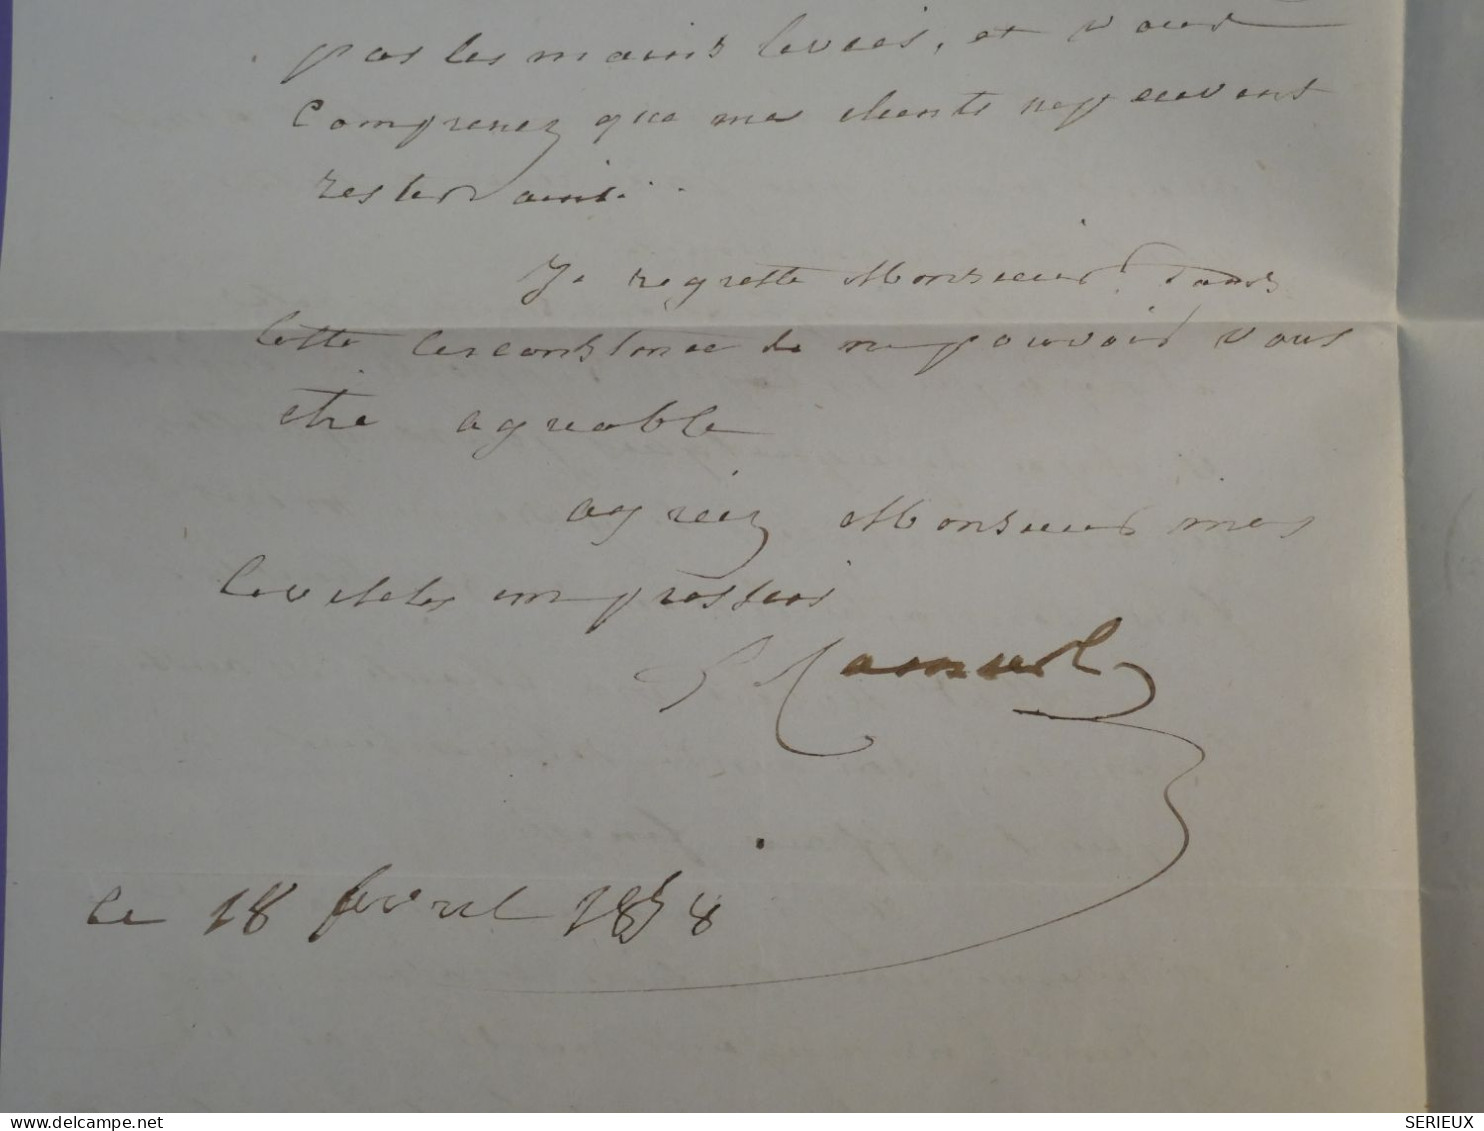 pas les mains levées, et vous
Comprenez que mes clients ne peuvent
rester ainsi.
Je regrette Monsieur dans
Cette circonstance de ne pouvoir vous
être agréable
agréez Monsieur mes
Civilités empressées
le 18 avril 1858
delcampe.net
SERIEUX